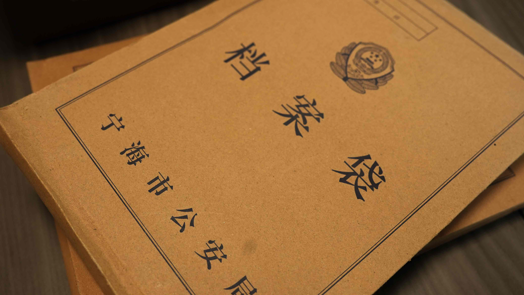 档案袋
宁海市公安局